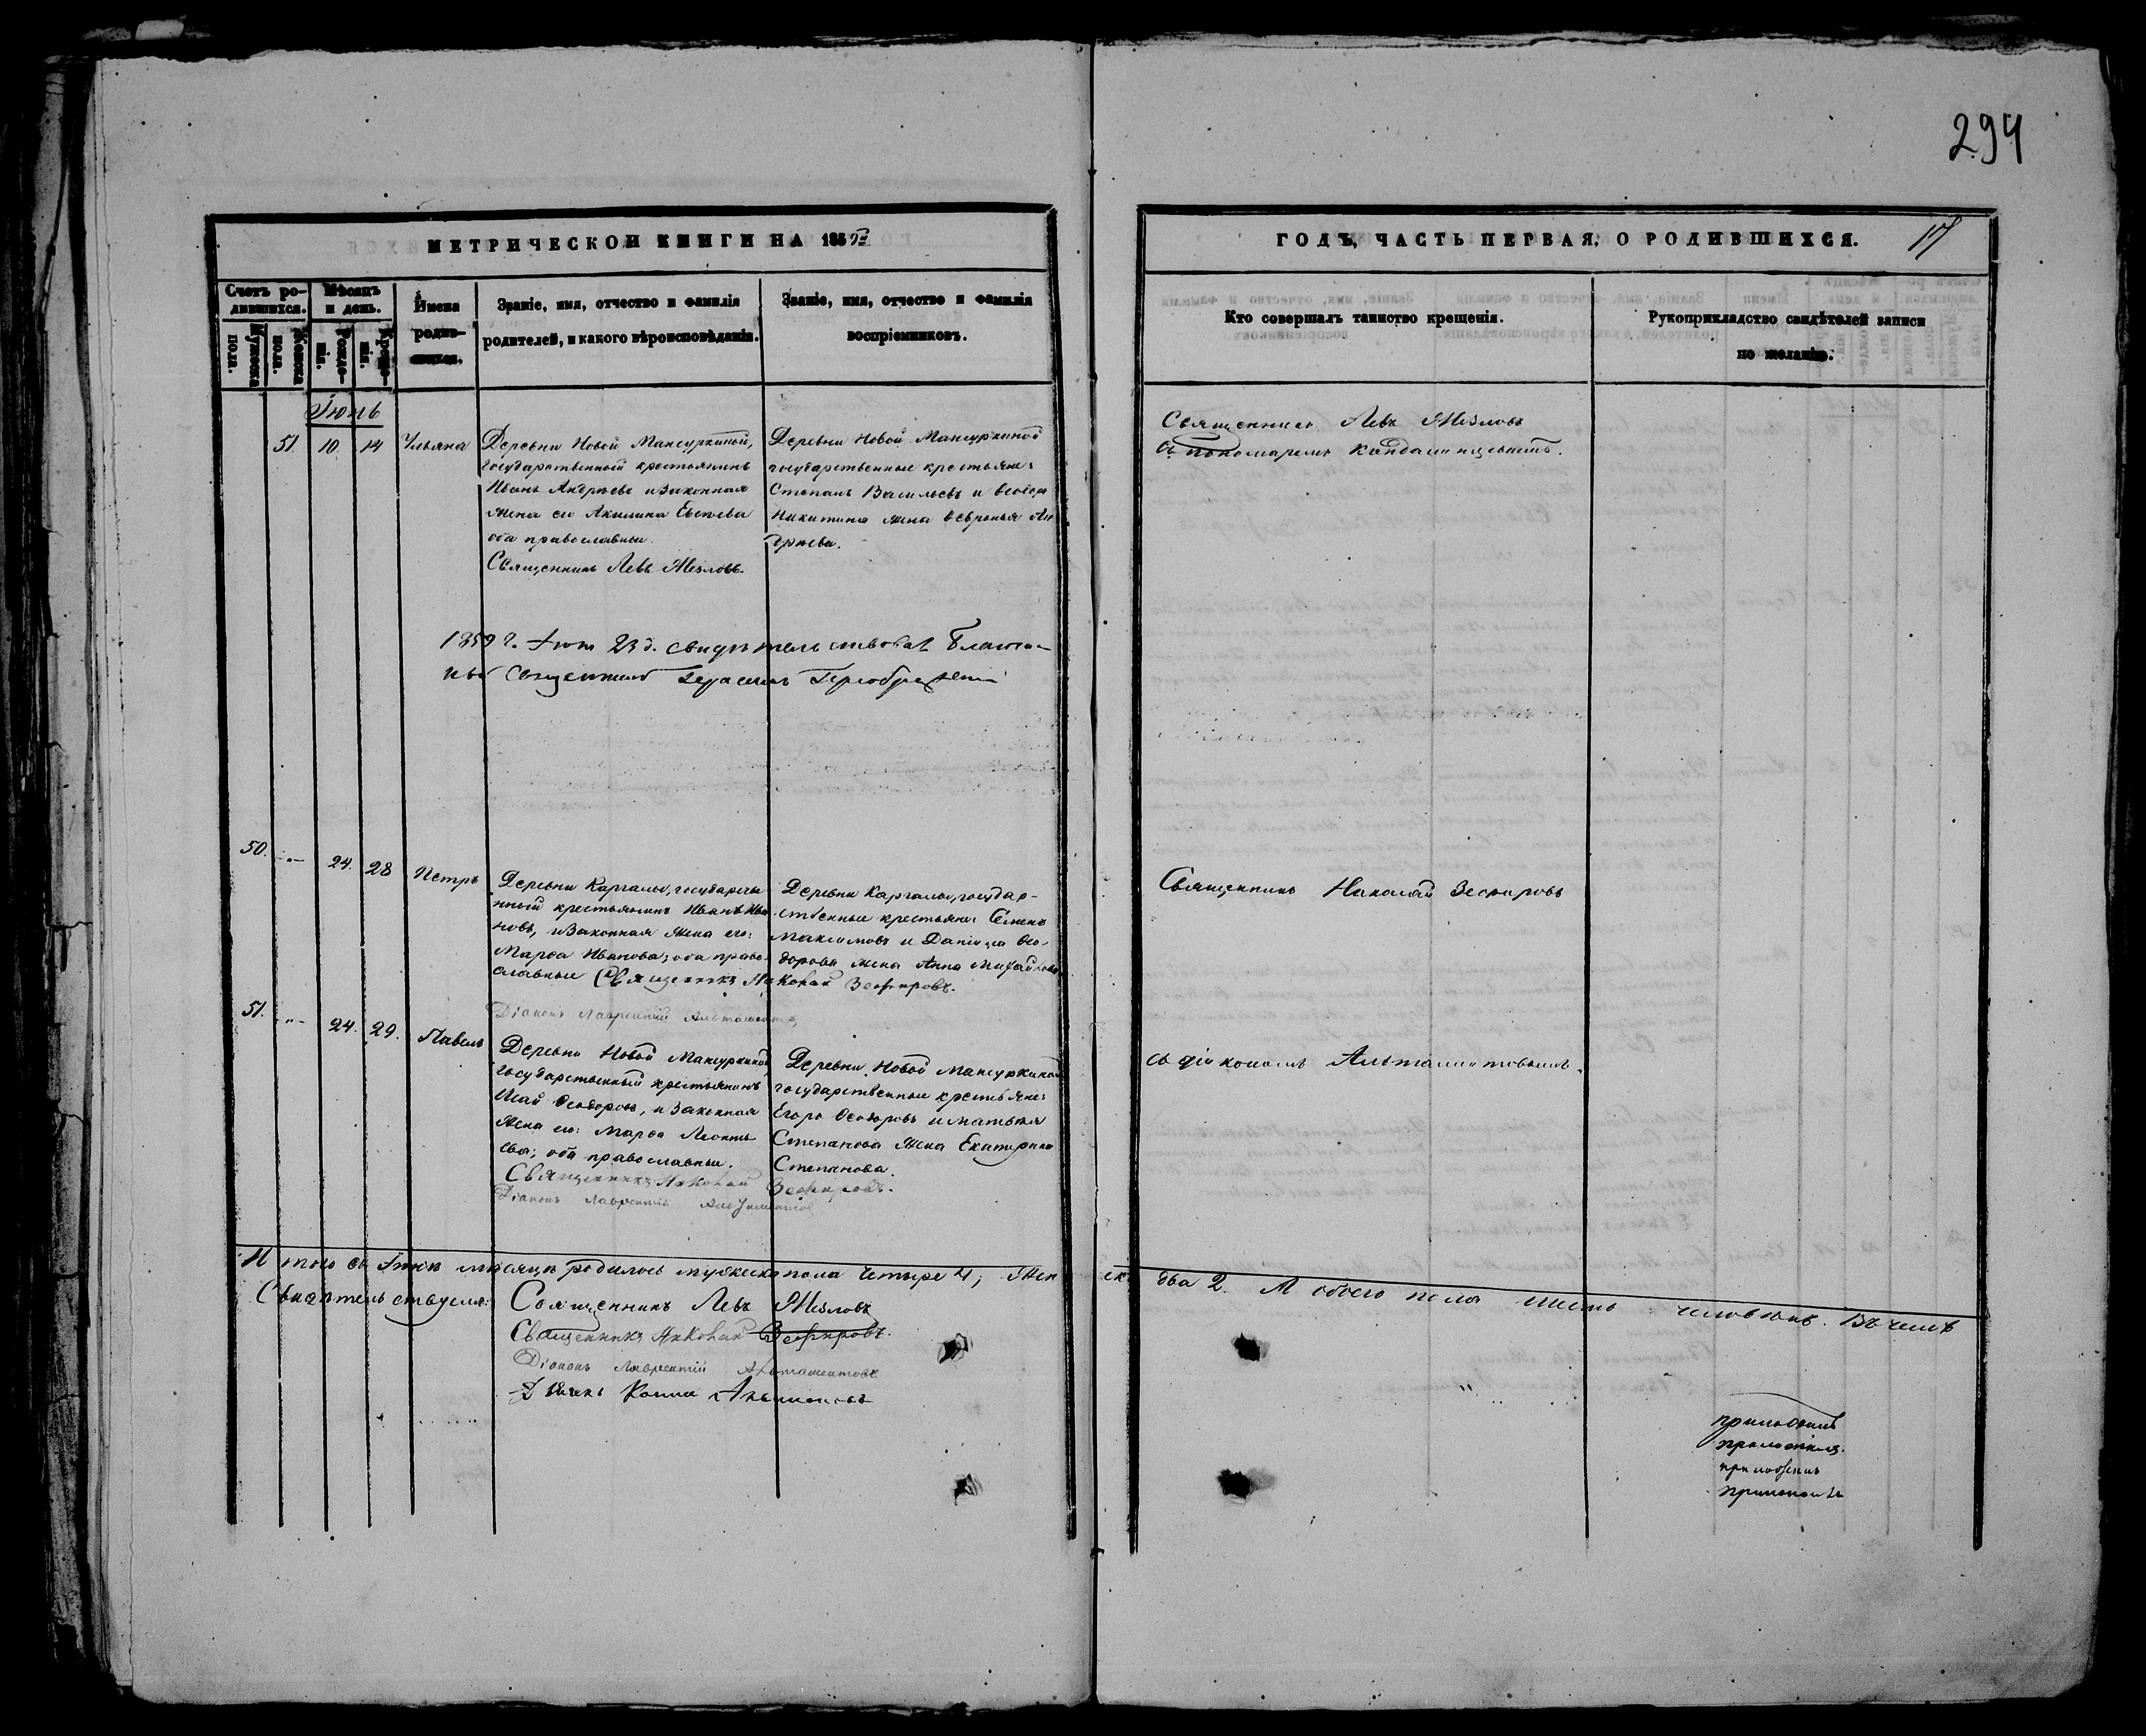 294
МЕТРИЧЕСКОЙ КНИГИ НА 1859й
ГОДЪ, ЧАСТЬ ПЕРВАЯ, О РОДИВШИХСЯ.
17
Счетъ родившихся.
Мужеска пола.
Женска пола.
Мѣсяцъ и день.
Рожденія.
Крещенія.
Имена родившихся.
Званіе, имя, отчество и фамилія
родителей, и какого вѣроисповѣданія.
Званіе, имя, отчество и фамилія
воспріемниковъ.
Кто совершалъ таинство крещенія.
Рукоприкладство свидѣтелей записи
по желанію.
Іюнь
51. 10. 14 Ульяна
Деревни Новой Мансуркиной,
государственный крестьянинъ
Иванъ Андреевъ и законная
жена его Акилина
оба православные
Священникъ Левъ Жезловъ.
Деревни Новой Мансуркиной
государственные крестьяне:
Степанъ Васильевъ и Ѳеодора
Никитина жена Ѳевронья Ан
дреева.
Священникъ Левъ Жезловъ
съ пономаремъ
1859 г. 23 д. свидѣтельствовалъ
священникъ
50. -"- 24. 28 Петръ
Деревни Каргалы, государстве
нный крестьянинъ Иванъ Ива
новъ, и законная жена его:
Марѳа Иванова; оба право
славные Священникъ Николай Зефировъ.
Діаконъ Лаврентій
Деревни Каргалы, государ-
ственные крестьяне: Семенъ
Максимовъ и Даніила Ѳео-
дорова жена Анна Михайлова
Священникъ Николай Зефировъ
51. -"- 24. 29. Павелъ
Деревни Новой Мансуркиной
государственный крестьянинъ
Исай Ѳеодоровъ, и законная
жена его: Марѳа Леонть
ева; оба православные.
Священникъ Николай Зефировъ.
Діаконъ Лаврентій
Деревни Новой Мансуркиной
государственные крестьяне:
Егоръ Ѳеодоровъ и Матвѣя
Степанова жена Екатерина
Степанова.
съ діакономъ
Итого въ Іюнѣ мѣсяцѣ родилось мужеска пола четыре 4, жен
ска два 2. А обоего пола шесть человѣкъ. Въ чемъ
Свидѣтельствуемъ: Священникъ Левъ Жезловъ
Священникъ Николай Зефировъ.
Діаконъ Лаврентій